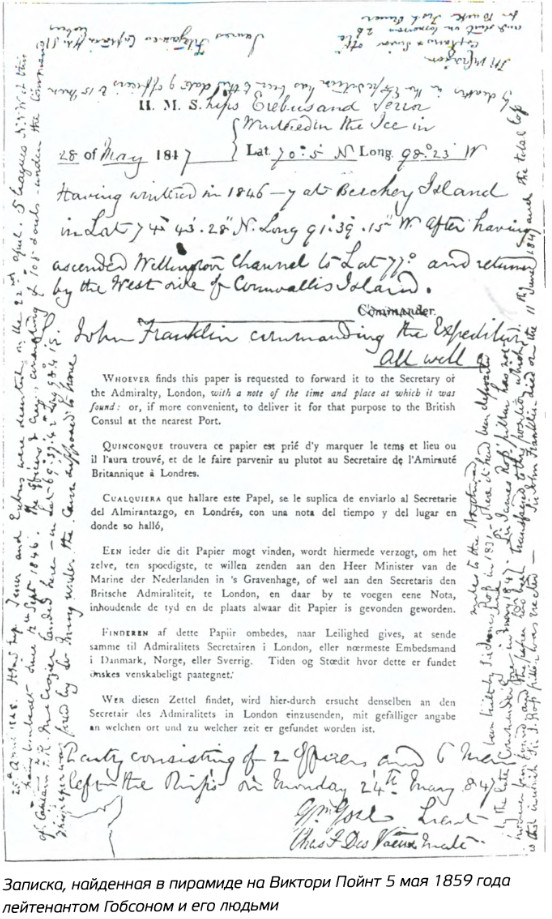 H. M. S. hips Erebus and Terror
Wintered in the Ice in
28 of May 1847 Lat. 70° 5 N Long. 98° 23 W
Having wintered in 1846–7 at Beechey Island
in Lat 74° 43. 28" N. Long 91. 39. 15" W. After having
ascended Wellington Channel to Lat 77° and returned
by the West side of Cornwallis Island.
Commander.
John Franklin commanding the Expedition
All well
WHOEVER finds this paper is requested to forward it to the Secretary of
the Admiralty, London, with a note of the time and place at which it was
found: or, if more convenient, to deliver it for that purpose to the British
Consul at the nearest Port.
QUINCONQUE trouvera ce papier est prié d'y marquer le tems et lieu ou
il l'aura trouvé, et de le faire parvenir au plutot au Secretaire de l'Amirauté
Britannique à Londres.
CUALQUIERA que hallare este Papel, se le suplica de enviarlo al Secretarie
del Almirantazgo, en Londrés, con una nota del tiempo y del lugar en
donde so halló,
EEN ieder die dit Papier mogt vinden, wordt hiermede verzogt, om het
zelve, ten spoedigste, te willen zenden aan den Heer Minister van de
Marine der Nederlanden in 's Gravenhage, of wel aan den Secretaris den
Britsche Admiraliteit, te London, en daar by te voegen eene Nota,
inhoudende de tyd en de plaats alwaar dit Papier is gevonden geworden.
FINDEREN af dette Papiir ombedes, naar Leilighed gives, at sende
samme til Admiralitets Secretairen i London, eller nœrmeste Embedsmand
i Danmark, Norge, eller Sverrig. Tiden og Stœdit hvor dette er fundet
önskes venskabeligt paategnet.
WER diesen Zettel findet, wird hier-durch ersucht denselben an den
Secretair des Admiralitets in London einzusenden, mit gefälliger angabe
an welchen ort und zu welcher zeit er gefundet worden ist.
Party consisting of 2 Officers and 6 Men
left the Ships on Monday 24th May 1847
Gm Gore Lieut
Chas F Des Voeux Mate
25th April 1848. HM Ships Terror and Erebus were deserted on the 22nd April. 5 leagues NNW of this
having been beset since 12th Sept 1846. The officers & crews consisting of 105 souls under the command
of Captain F.R.M. Crozier landed here – in Lat 69° 37' 42" Long 98° 41'
Sir John Franklin died on the 11th June 1847 and the total loss
by deaths in the Expedition has been to this date 9 officers & 15 men
James Fitzjames Captain HMS Erebus
Captain & Senior Offr
and start on tomorrow 26th
for Backs Fish River
Записка, найденная в пирамиде на Виктори Пойнт 5 мая 1859 года
лейтенантом Гобсоном и его людьми